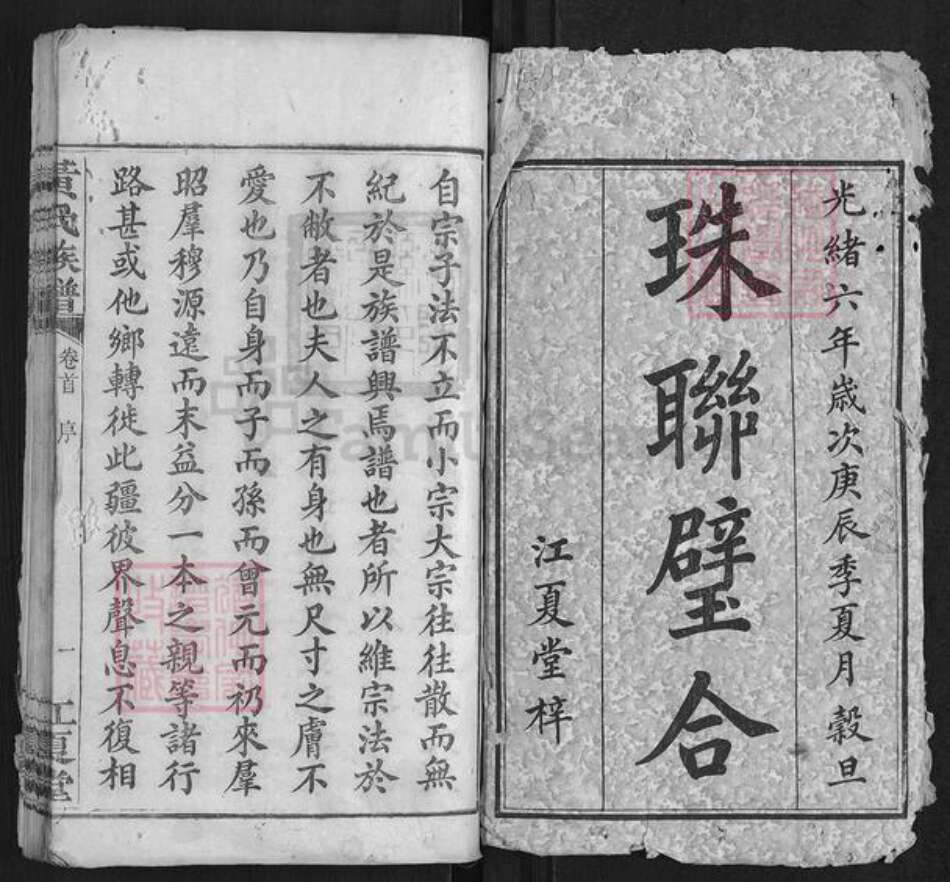 光緒六年歲次庚辰季夏月穀旦
珠聯璧合
江夏堂梓
自宗子法不立而小宗大宗往往散而無
紀於是族譜興焉譜也者所以維宗法於
不敝者也夫人之有身也無尺寸之膚不
愛也乃自身而子而孫而曾元而礽來羣
昭羣穆源遠而末益分一本之親等諸行
路甚或他鄉轉徙此疆彼界聲息不復相
黃氏族譜
卷首 序
一
江夏堂